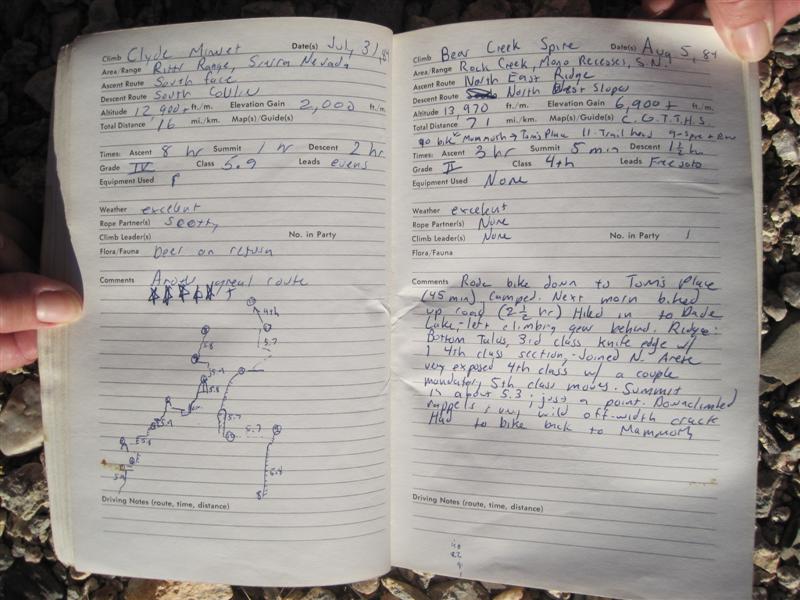 Climb Clyde Minret Date(s) July 31, 84
Area/Range Ritter Range, Sierra Nevada
Ascent Route South face
Descent Route South Couloir
Altitude 12,900+ ft./m. Elevation Gain 2,000 ft./m.
Total Distance 16 mi./km. Map(s)/Guide(s)
Times: Ascent 8 hr Summit 1 hr Descent 2 hr
Grade IV Class 5.9 Leads evens
Equipment Used
Weather excelent
Rope Partner(s) Scotty
Climb Leader(s) No. in Party
Flora/Fauna Deer on return
Comments great route
4th
5.7
5.8
5.8
5.7
5.7
5.9
5.8
5.4
Driving Notes (route, time, distance)
Climb Bear Creek Spire Date(s) Aug 5, 84
Area/Range Rock Creek, Mono Recesses, S.N.
Ascent Route North East Ridge
Descent Route North Slopes
Altitude 13,970 ft./m. Elevation Gain 6,900+ ft./m.
Total Distance 71 mi./km. Map(s)/Guide(s) C.G.T.T.H.S.
90 bike Mammoth → Tom's Place 11-Trail head
Times: Ascent 3 hr Summit 5 min Descent 1½ hr
Grade II Class 4th Leads Free solo
Equipment Used None
Weather excelent
Rope Partner(s) None
Climb Leader(s) None No. in Party 1
Flora/Fauna
Comments Rode bike down to Tom's Place
(45 min) camped. Next morn biked
up road (2½ hr) Hiked in to Dade
Lake, left climbing gear behind. Ridge:
Bottom Talus, 3rd class knife edge w/
1 4th class section, Joined N. Arete
very exposed 4th class w/ a couple
mandatory 5th class moves. Summit
is about 5.3, just a point. Downclimbed
rappels, very wild off-width crack
Had to bike back to Mammoth
Driving Notes (route, time, distance)